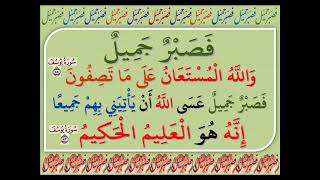 فَصَبْرٌ جَمِيلٌ فَصَبْرٌ جَمِيلٌ فَصَبْرٌ جَمِيلٌ فَصَبْرٌ جَمِيلٌ فَصَبْرٌ جَمِيلٌ فَصَبْرٌ جَمِيلٌ فَصَبْرٌ جَمِيلٌ فَصَبْرٌ جَمِيلٌ
فَصَبْرٌ جَمِيلٌ
وَاللَّهُ الْمُسْتَعَانُ عَلَى مَا تَصِفُونَ سُورَةُ يُوسُفَ
فَصَبْرٌ جَمِيلٌ عَسَى اللَّهُ أَنْ يَأْتِيَنِي بِهِمْ جَمِيعًا
إِنَّهُ هُوَ الْعَلِيمُ الْحَكِيمُ سُورَةُ يُوسُفَ